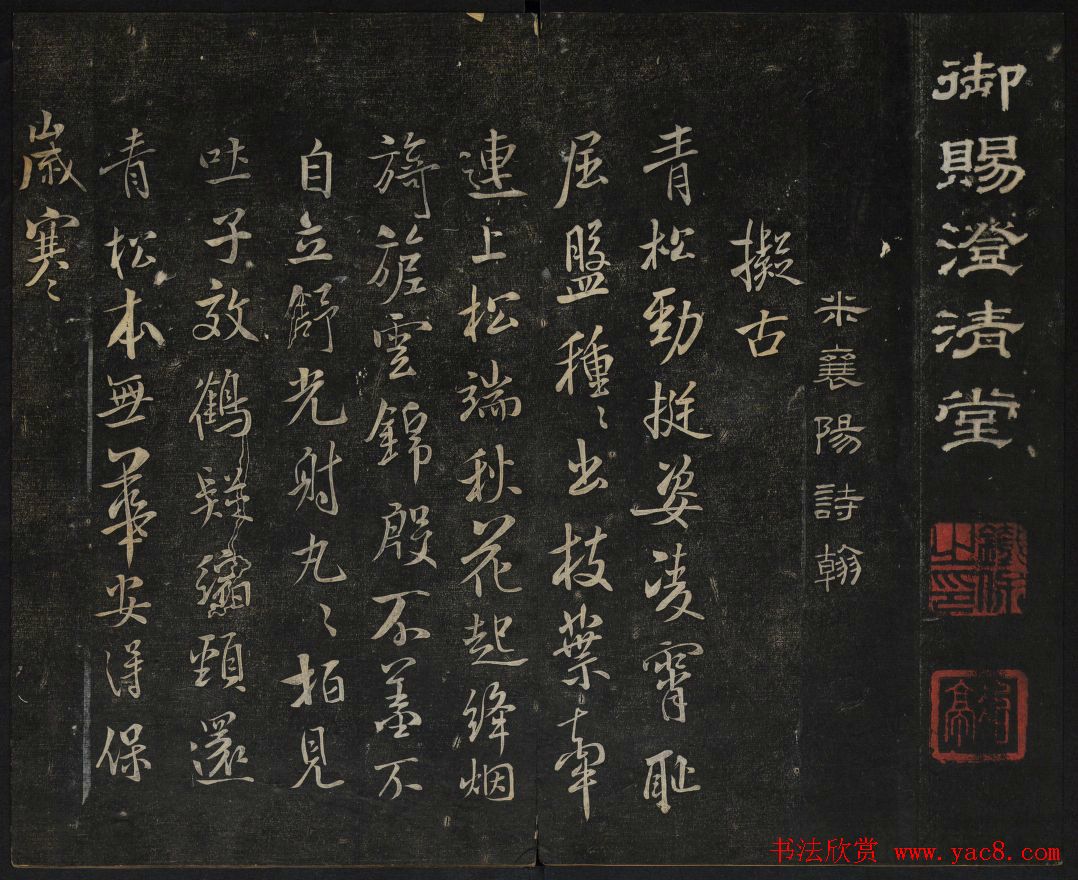 御賜澄清堂
鐵保之印
米襄陽詩翰
擬古
青松勁挺姿凌霄恥
屈盤種〻出枝葉牽
連上松端秋花起絳烟
旖旎雲錦殷不羞不
自立舒光射丸〻柏見
吐子效鶴疑縮頸還
青松本無華安得保
歲寒
书法欣赏 www.yac8.com